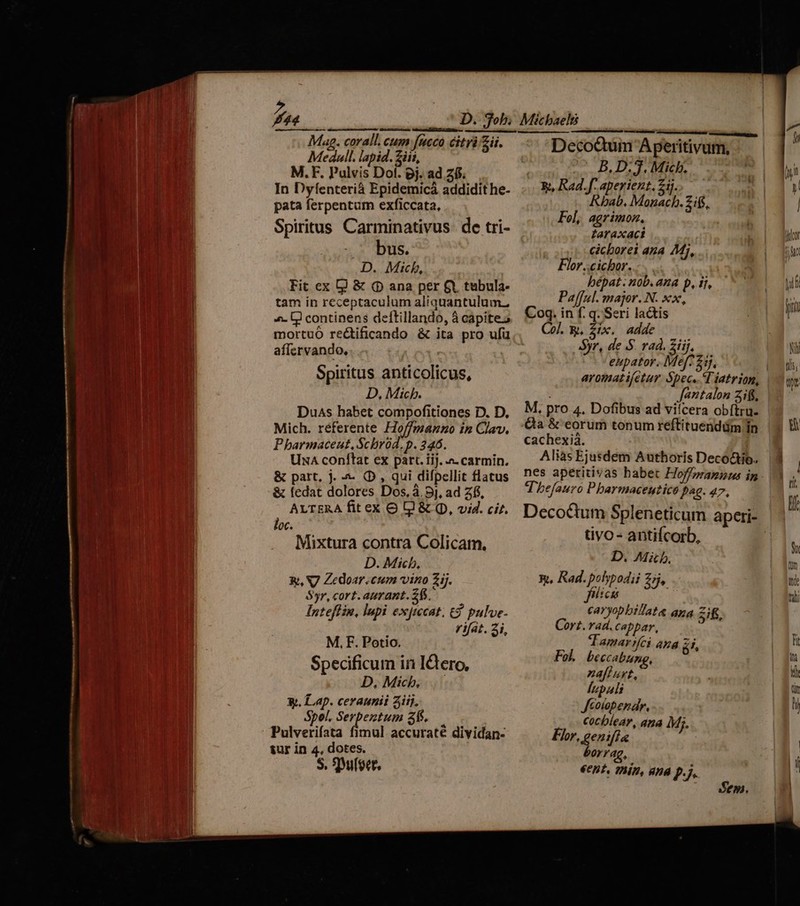 244 D. Joh. Michaelis
Mag. corall. cum succo citri ℥ii.
Medull. lapid. ℥iii,
M. F. Pulvis Dos. ℈j. ad ʒß.
In Dysenteriâ Epidemicâ addidit he-
pata serpentum exsiccata.
Spiritus Carminativus de tri-
bus.
D. Mich,
Fit ex 🜿 & 🜕 ana per tubula-
tam in receptaculum aliquantulum
continens destillando, à capite
mortuô rectificando & ita pro usu
asservando.
Spiritus anticolicus,
D. Mich.
Duas habet compositiones D. D.
Mich. referente Hoffmanno in Clav.
Pharmaceut. Schröd. p. 346.
Una constat ex part. iij. carmin.
& part. j. 🜕, qui dispellit flatus
& sedat dolores Dos. à ℈j, ad ʒß,
Altera fit ex & 🜕, vid. cit.
loc.
Mixtura contra Colicam,
D. Mich.
℞, Zedoar. cum vino ℥ij.
Syr. cort. aurant. ℥ß.
Intestin. lupi exsiccat. & pulve-
risat. ʒi,
M. F. Potio.
Specificum in Ictero,
D. Mich.
℞. Lap. ceraunii ʒiij.
Spol. Serpentum ʒß.
Pulverisata simul accuratè dividan-
tur in 4. dotes.
S. Pulver.
Decoctum Aperitivum,
B. D. J. Mich.
℞, Rad. 5. aperient. ℥ij.
Rhab. Monach. ℥iß,
Fol, agrimon.
taraxaci
cichorei ana Mj,
Flor. cichor.
hepat. nob. ana p. ij,
Passul. major. N. xx,
Coq. in s. q. Seri lactis
Col. ℞. ℥ix. adde
Syr, de 5 rad. ℥iij.
eupator. Mes. ℥ij,
aromatisetur Spec. Diatrion,
santalon ʒiß,
M. pro 4. Dosibus ad viscera obstru-
cta & eorum tonum restituendum in
cachexiâ.
Alias Ejusdem Authoris Decoctio-
nes aperitivas habet Hoffmannus in
Thesauro Pharmaceutico pag. 47,
Decoctum Spleneticum aperi-
tivo-antiscorb,
D. Mich.
℞, Rad. polypodii ℥j,
filicis
caryophillatæ ana ℥iß,
Cort. rad. cappar,
Tamarisci ana ℥i,
Fol. beccabung.
nasturt,
lupuli
scolopendr.
cochlear, ana Mj.
Flor, genistæ
borrag,
cent. min, ana p.j.
Sem.